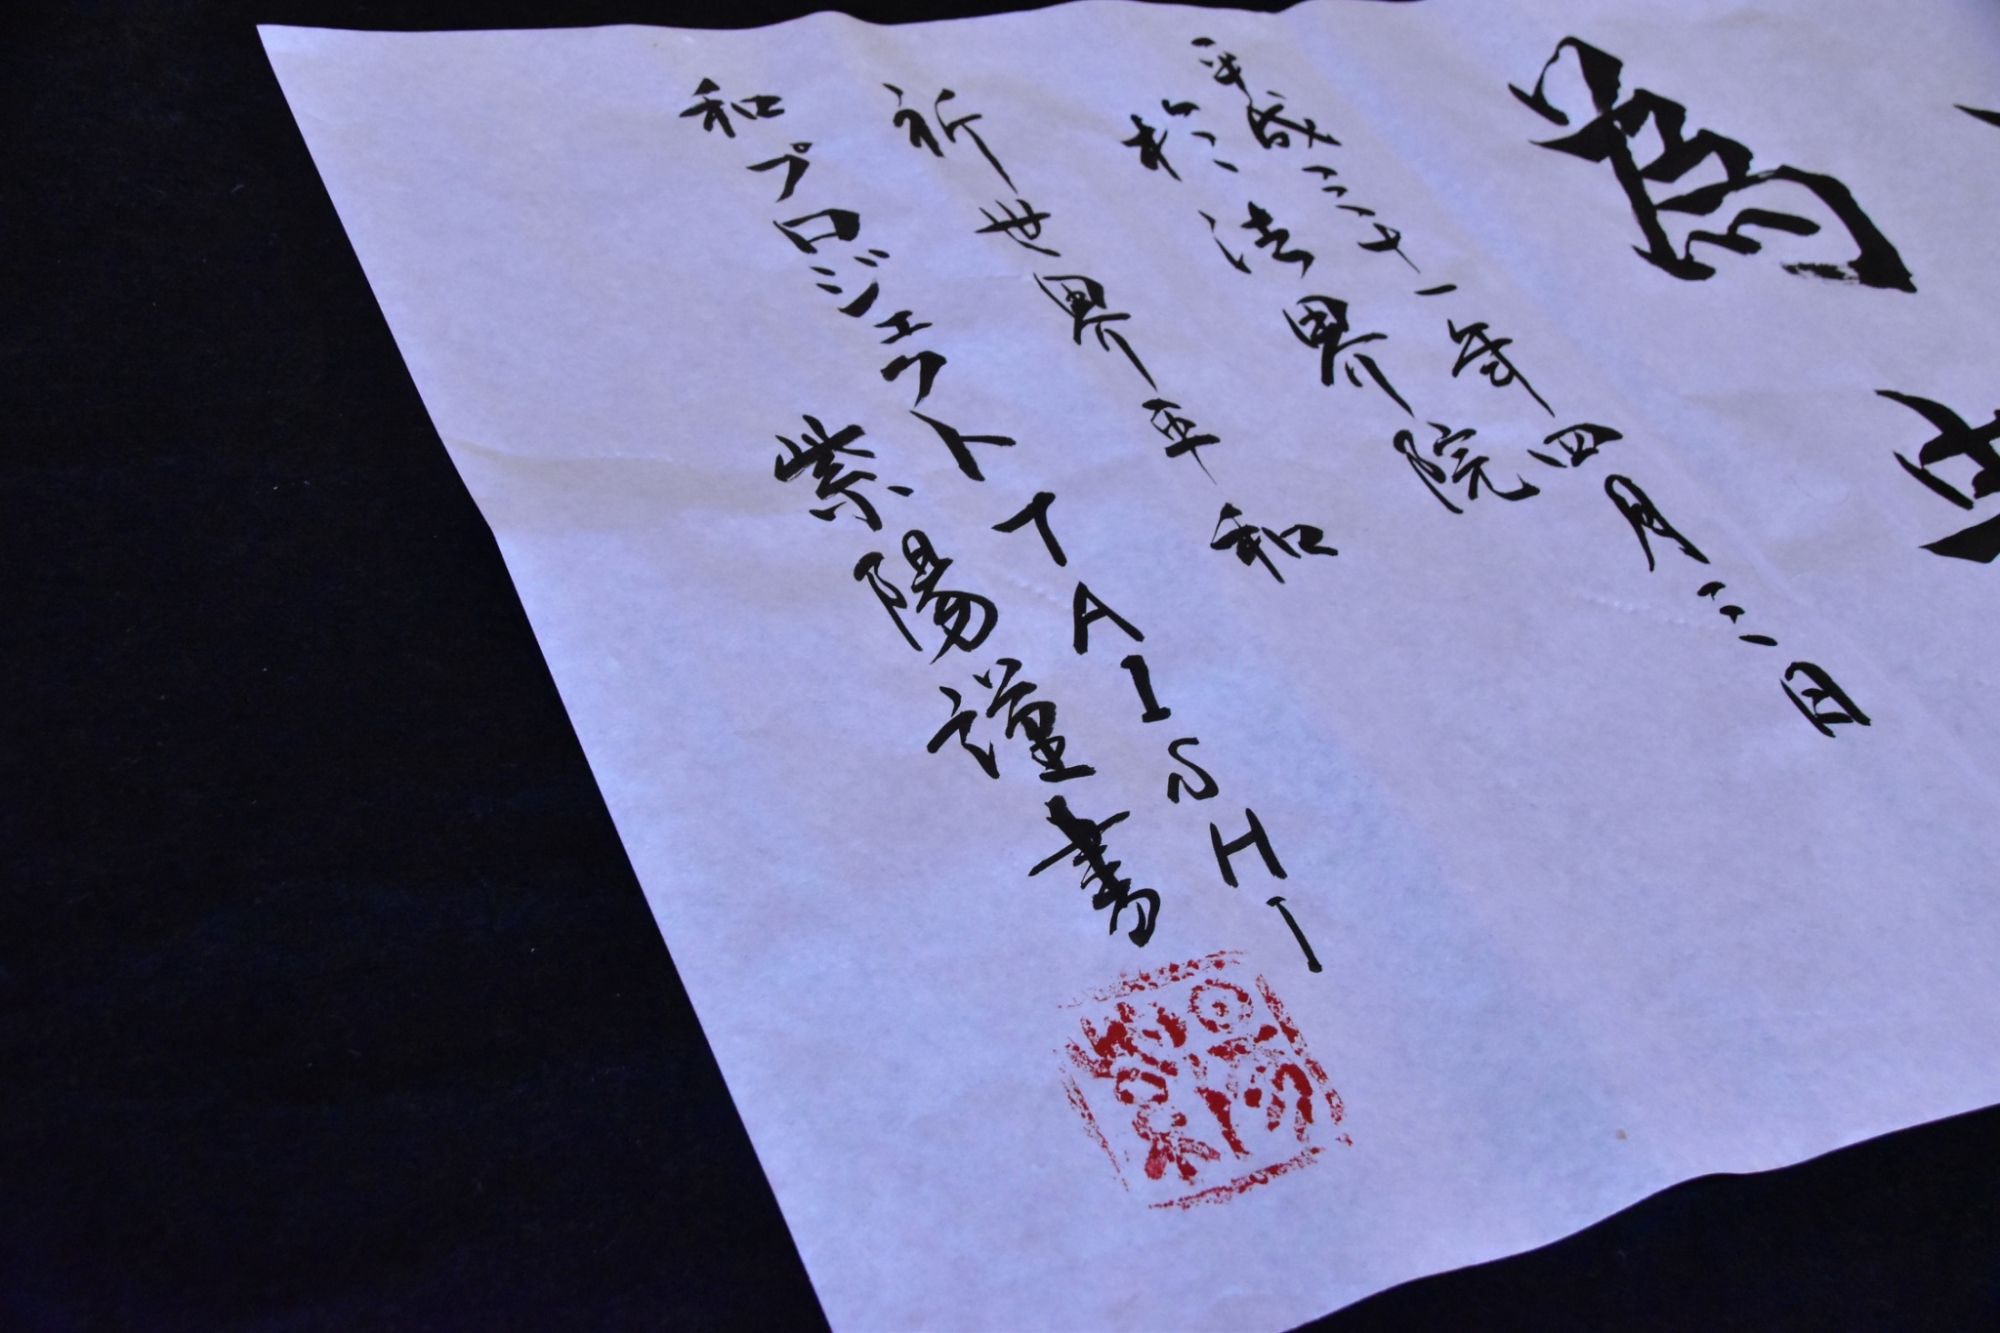 平成三十一年四月二日
於 法界院
祈世界平和
和プロジェクトTAISHI
紫陽謹書